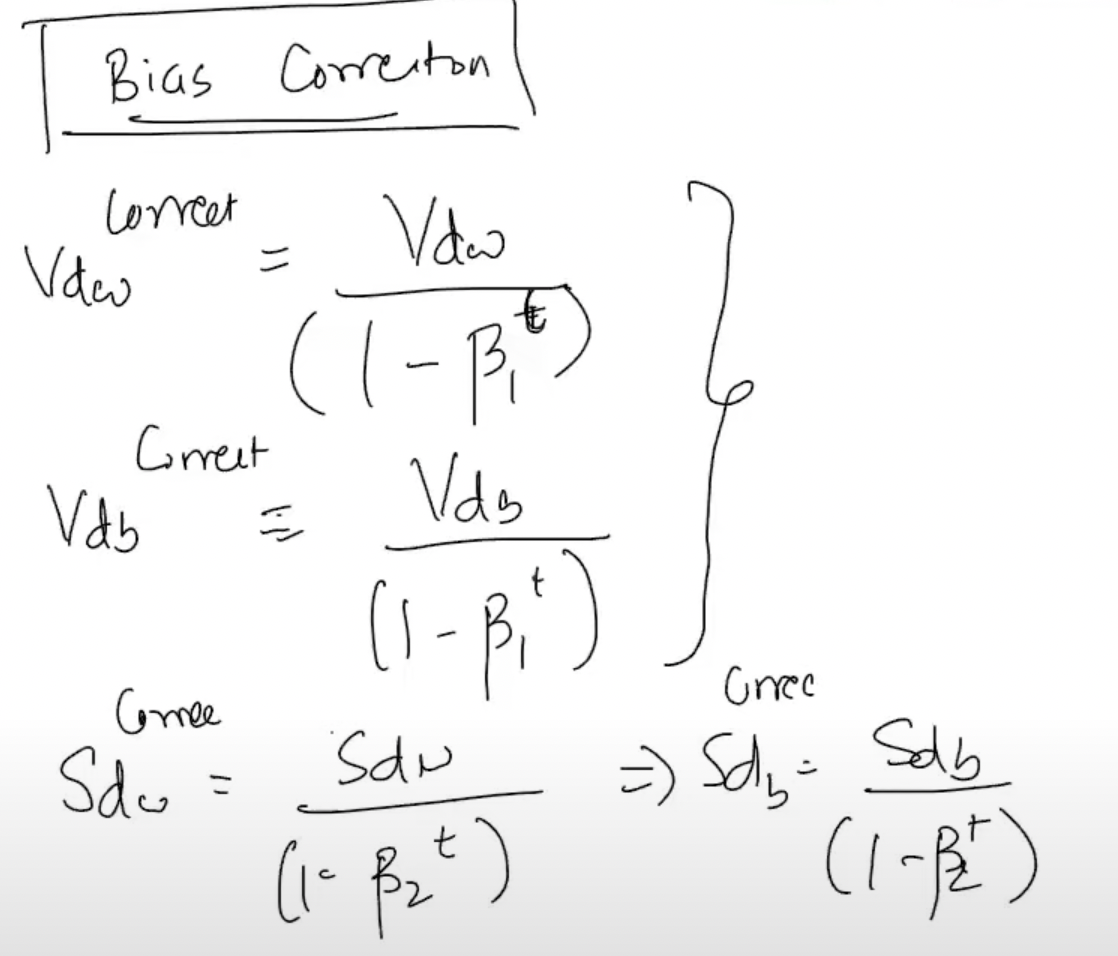 Bias Correction
V_dw^Correct = V_dw / (1 - β_1^t)
V_db^Correct = V_db / (1 - β_1^t)
S_dw^Corree = S_dw / (1 - β_2^t) ⇒ S_db^Correc = S_db / (1 - β_2^t)